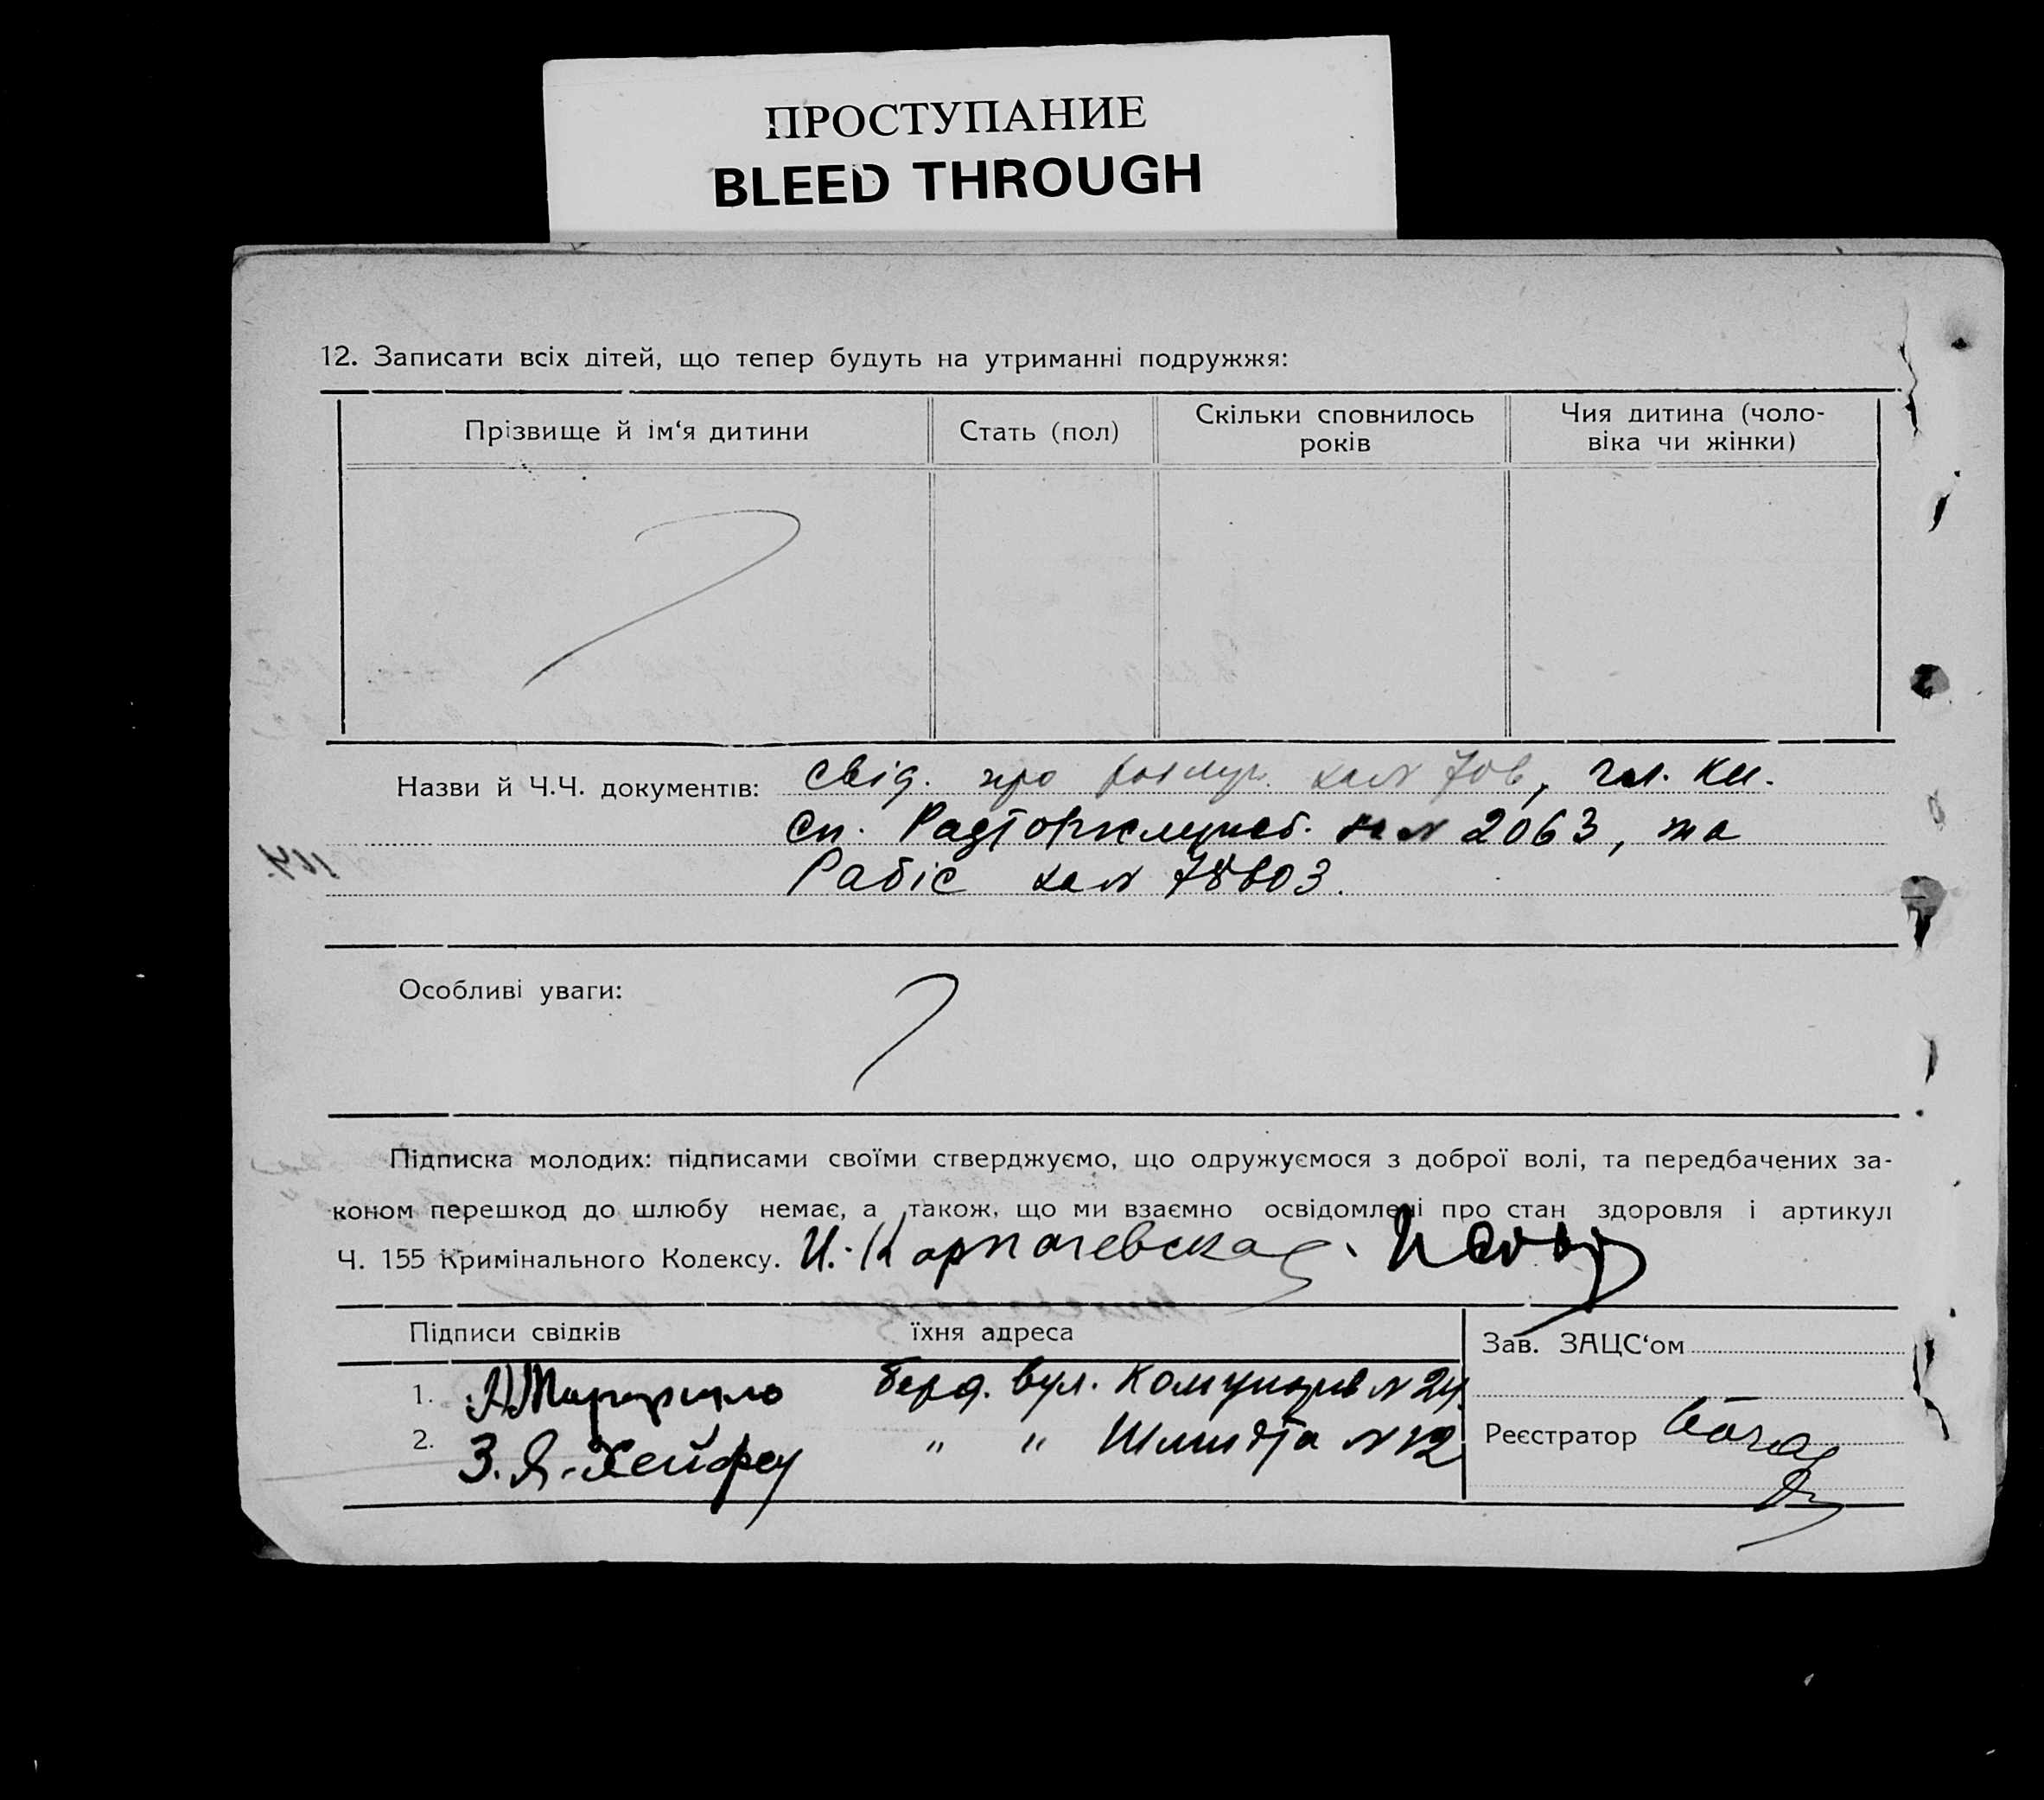 ПРОСТУПАНИЕ
BLEED THROUGH
12. Записати всіх дітей, що тепер будуть на утриманні подружжя:
Прізвище й ім‘я дитини
Стать (пол)
Скільки сповнилось
років
Чия дитина (чоло-
віка чи жінки)
Назви й Ч.Ч. документів: свід. про за № 706, чл. кн.
сп. Радторгслужб. за № 2063, та
Рабіс за № 78603.
Особливі уваги:
Підписка молодих: підписами своїми стверджуємо, що одружуємося з доброї волі, та передбачених за-
коном перешкод до шлюбу немає, а також, що ми взаємно освідомлені про стан здоровля і артикул
Ч. 155 Кримінального Кодексу. И. Карпачевская.
Підписи свідків їхня адреса
Зав. ЗАЦС‘ом
1. Берд. вул. Комунарів № 24.
2. З. Я. Хейфец " " Шмидта № 12
Реєстратор